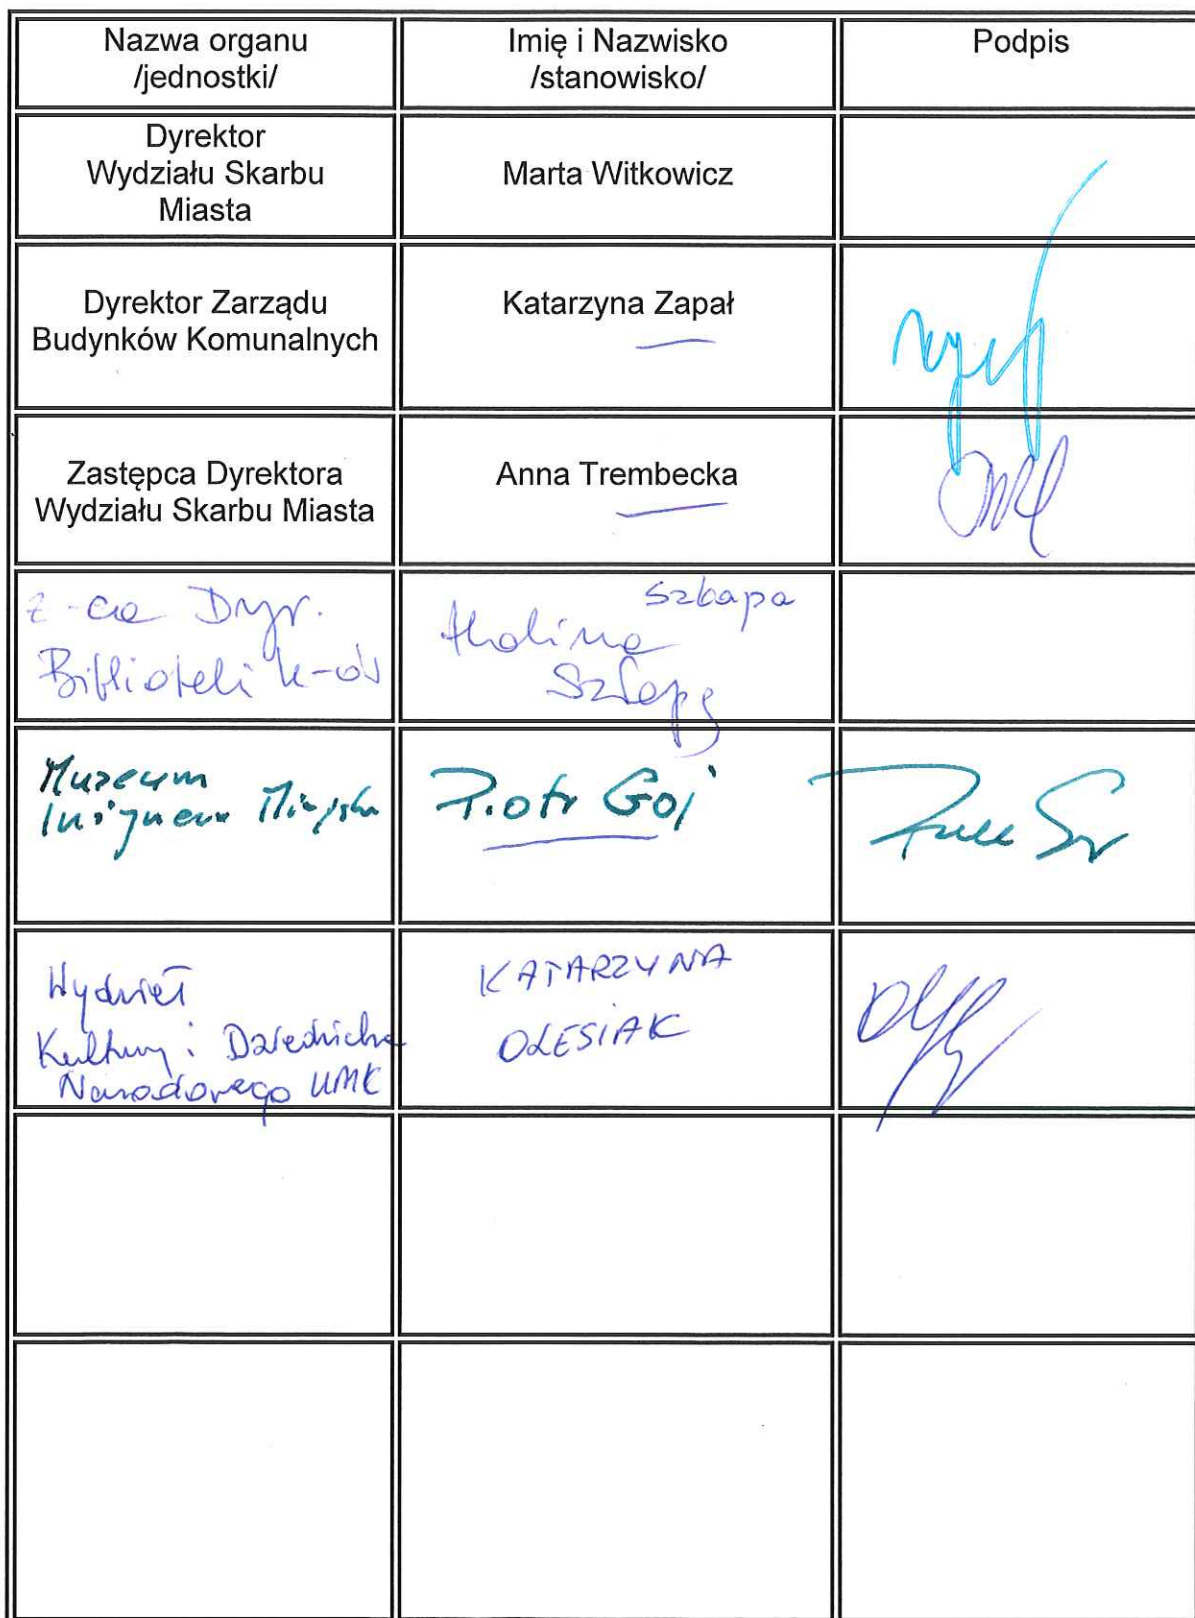 Nazwa organu
/jednostki/
Imię i Nazwisko
/stanowisko/
Podpis
Dyrektor
Wydziału Skarbu
Miasta
Marta Witkowicz
Dyrektor Zarządu
Budynków Komunalnych
Katarzyna Zapał
Zastępca Dyrektora
Wydziału Skarbu Miasta
Anna Trembecka
Z-ca Dyr.
Biblioteki K-ów
Szkapa
Halina
Muzeum
Piotr Goj
Wydział
Kultury i Dziedzictwa
Narodowego UMK
KATARZYNA
OLESIAK